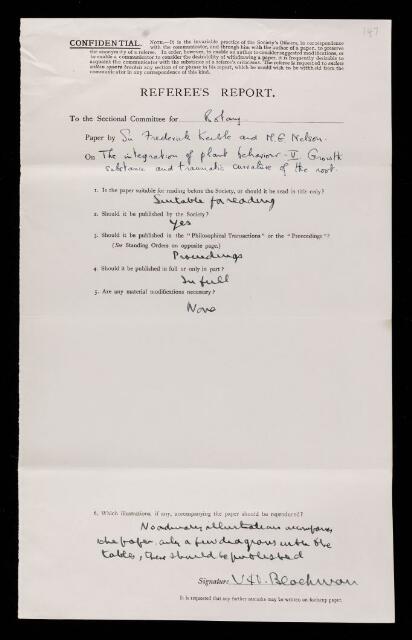 147
CONFIDENTIAL. NOTE.—It is the invariable practice of the Society's Officers, in correspondence
with the communicator, and through him with the author of a paper, to preserve
the anonymity of a referee. In order, however, to enable an author to consider suggested modifications, or
to enable a communicator to consider the desirability of withdrawing a paper, it is frequently desirable to
acquaint the communicator with the substance of a referee's criticisms. The referee is requested to enclose
within square brackets any section of or phrase in his report, which he would wish to be withheld from the
communicator in any correspondence of this kind.
REFEREE'S REPORT.
To the Sectional Committee for Botany
Paper by Sir Frederick Keeble and M.G. Nelson.
On The integration of plant behaviour - V. Growth
substance and traumatic curvature of the root.
1. Is the paper suitable for reading before the Society, or should it be read in title only?
Suitable for reading
2. Should it be published by the Society?
Yes
3. Should it be published in the "Philosophical Transactions" or the "Proceedings"?
(See Standing Orders on opposite page.)
Proceedings
4. Should it be published in full or only in part?
In full
5. Are any material modifications necessary?
None
6. Which illustrations, if any, accompanying the paper should be reproduced?
No ordinary illustrations accompany
the paper, only a few diagrams with the
tables, these should be published
Signature V H. Blackman
It is requested that any further remarks may be written on foolscap paper.